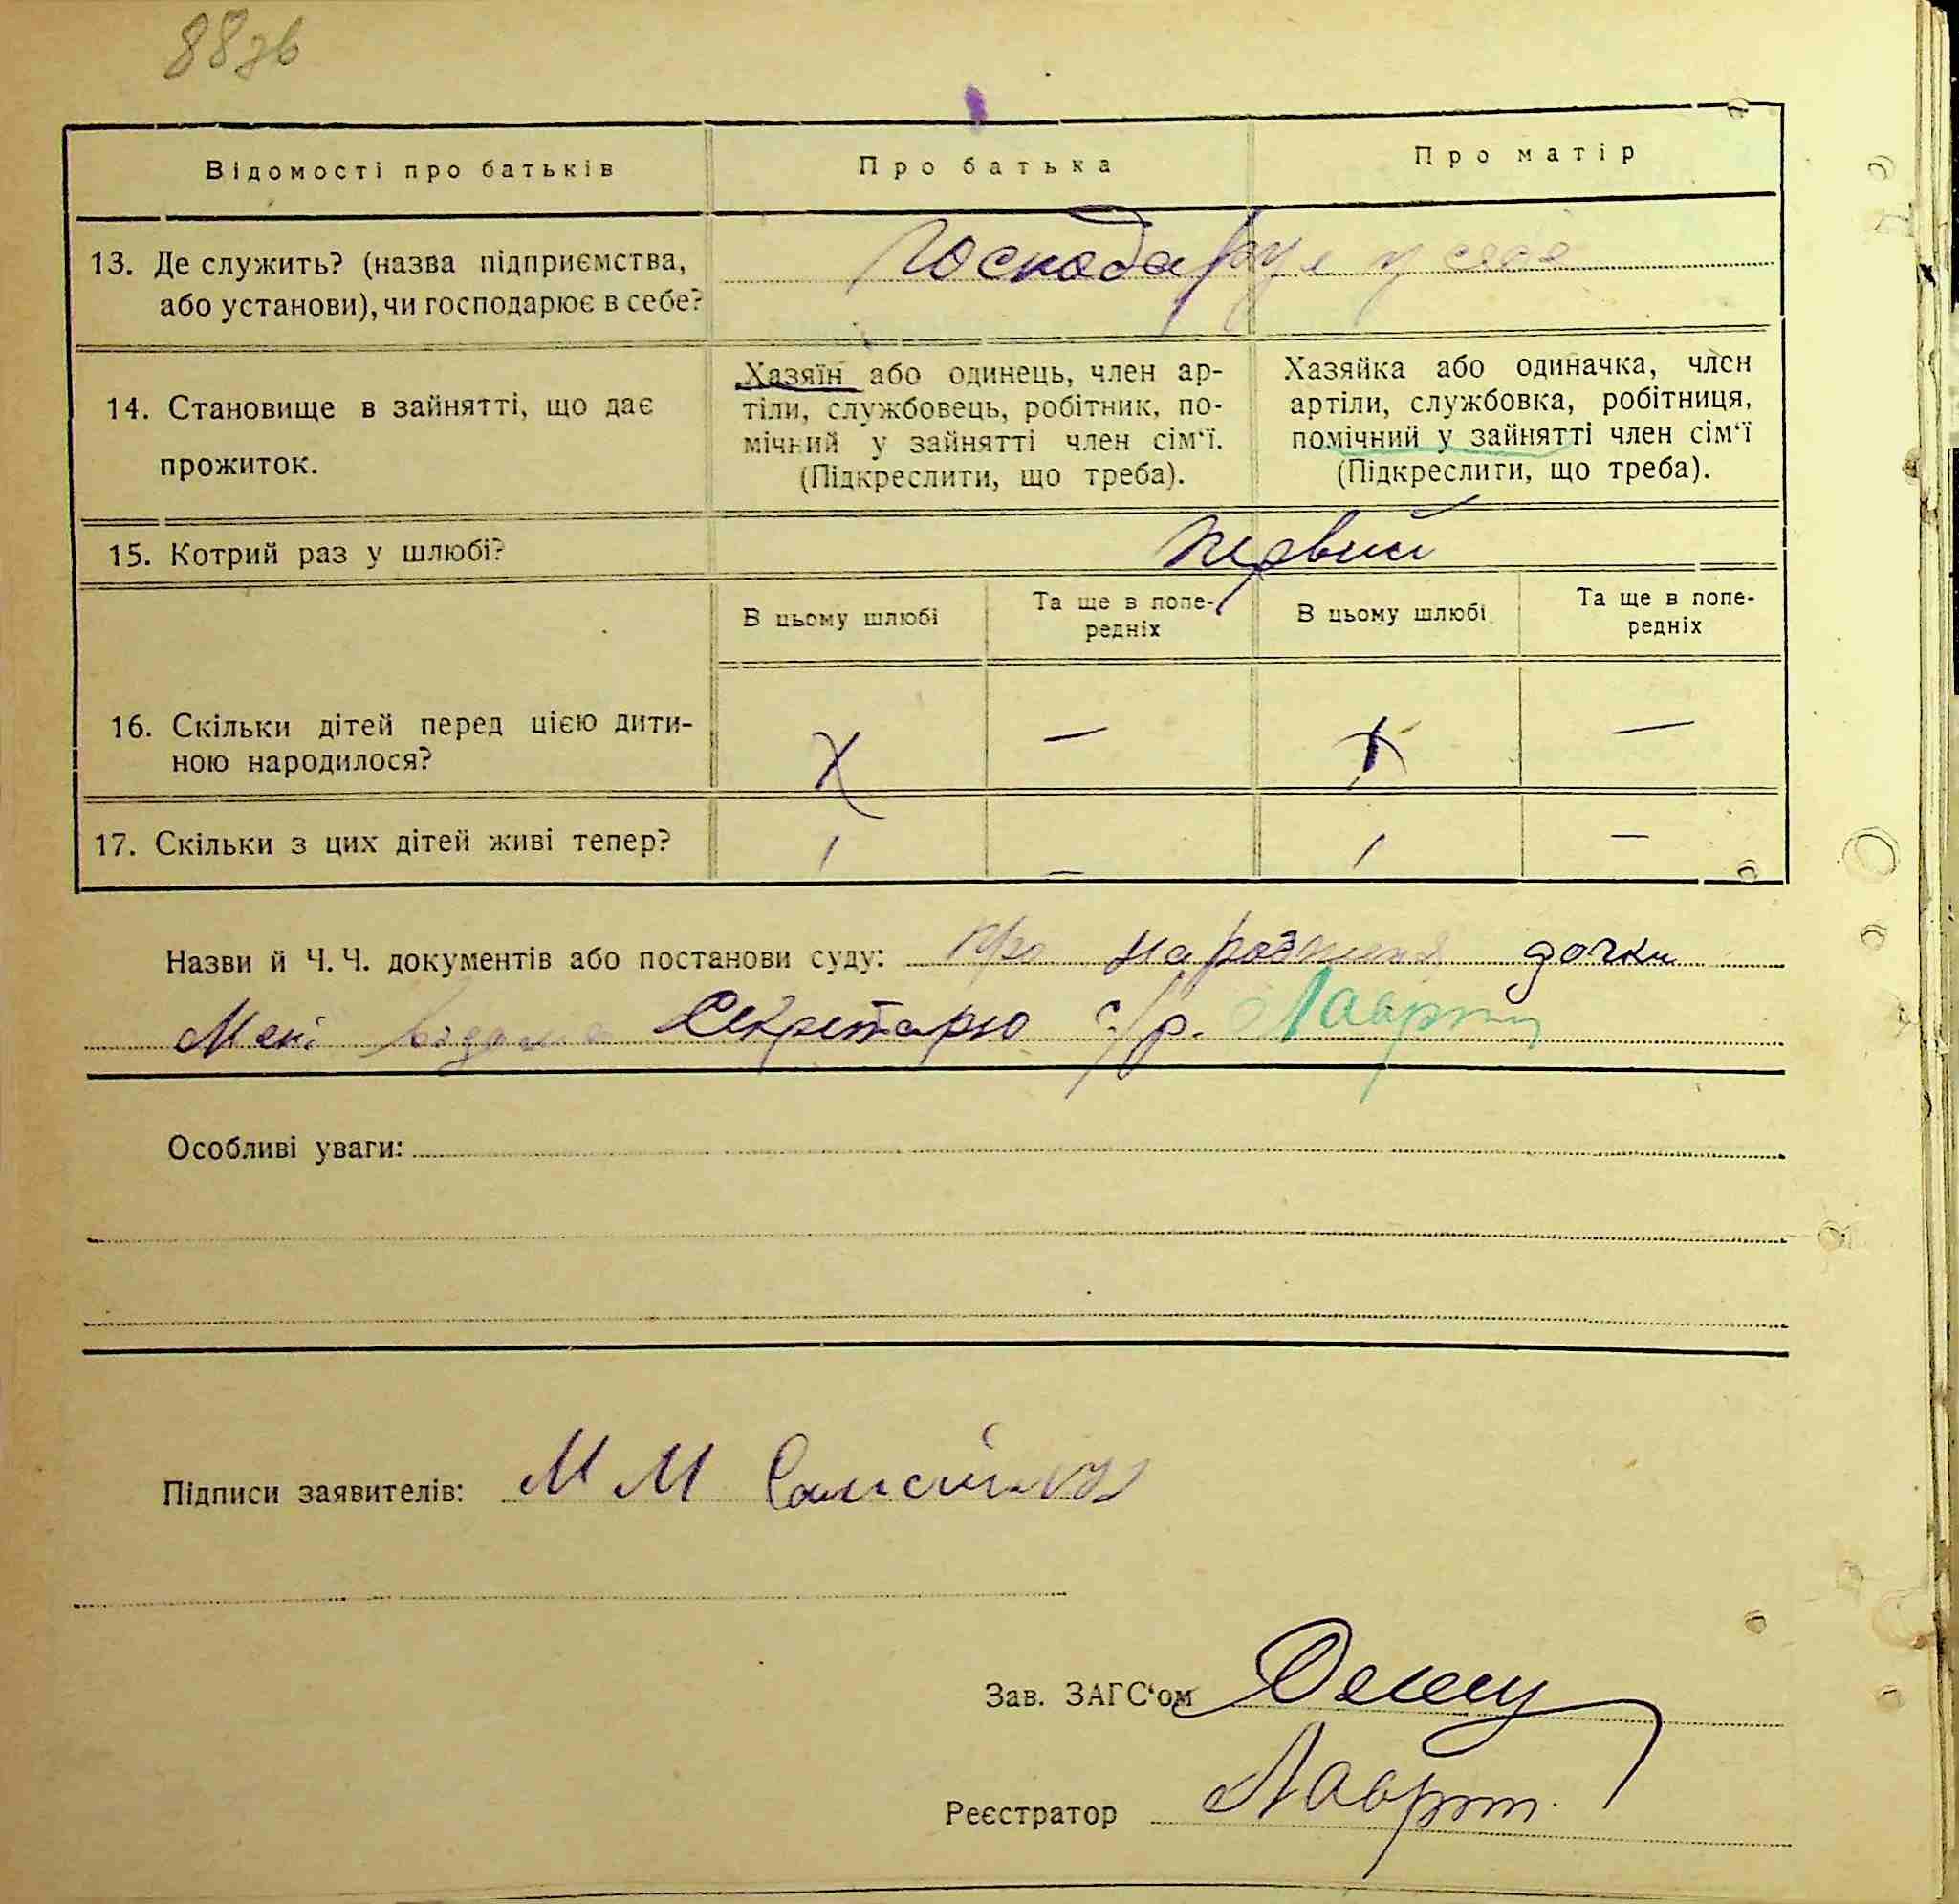 88зв
Відомості про батьків
Про батька
Про матір
13. Де служить? (назва підприємства,
або установи), чи господарює в себе?
Господарує у себе
14. Становище в зайнятті, що дає
прожиток.
Хазяїн або одинець, член ар-
тіли, службовець, робітник, по-
мічний у зайнятті член сім‘ї.
(Підкреслити, що треба).
Хазяйка або одиначка, член
артіли, службовка, робітниця,
помічний у зайнятті член сім‘ї
(Підкреслити, що треба).
15. Котрий раз у шлюбі?
первий
В цьому шлюбі
Та ще в попе-
редніх
В цьому шлюбі
Та ще в попе-
редніх
16. Скільки дітей перед цією дити-
ною народилося?
— —
17. Скільки з цих дітей живі тепер?
/ — / —
Назви й Ч. Ч. документів або постанови суду: про народження дочки
Мені відомо Секретарю с/р.
Особливі уваги:
Підписи заявителів: М М
Зав. ЗАГС‘ом
Реєстратор